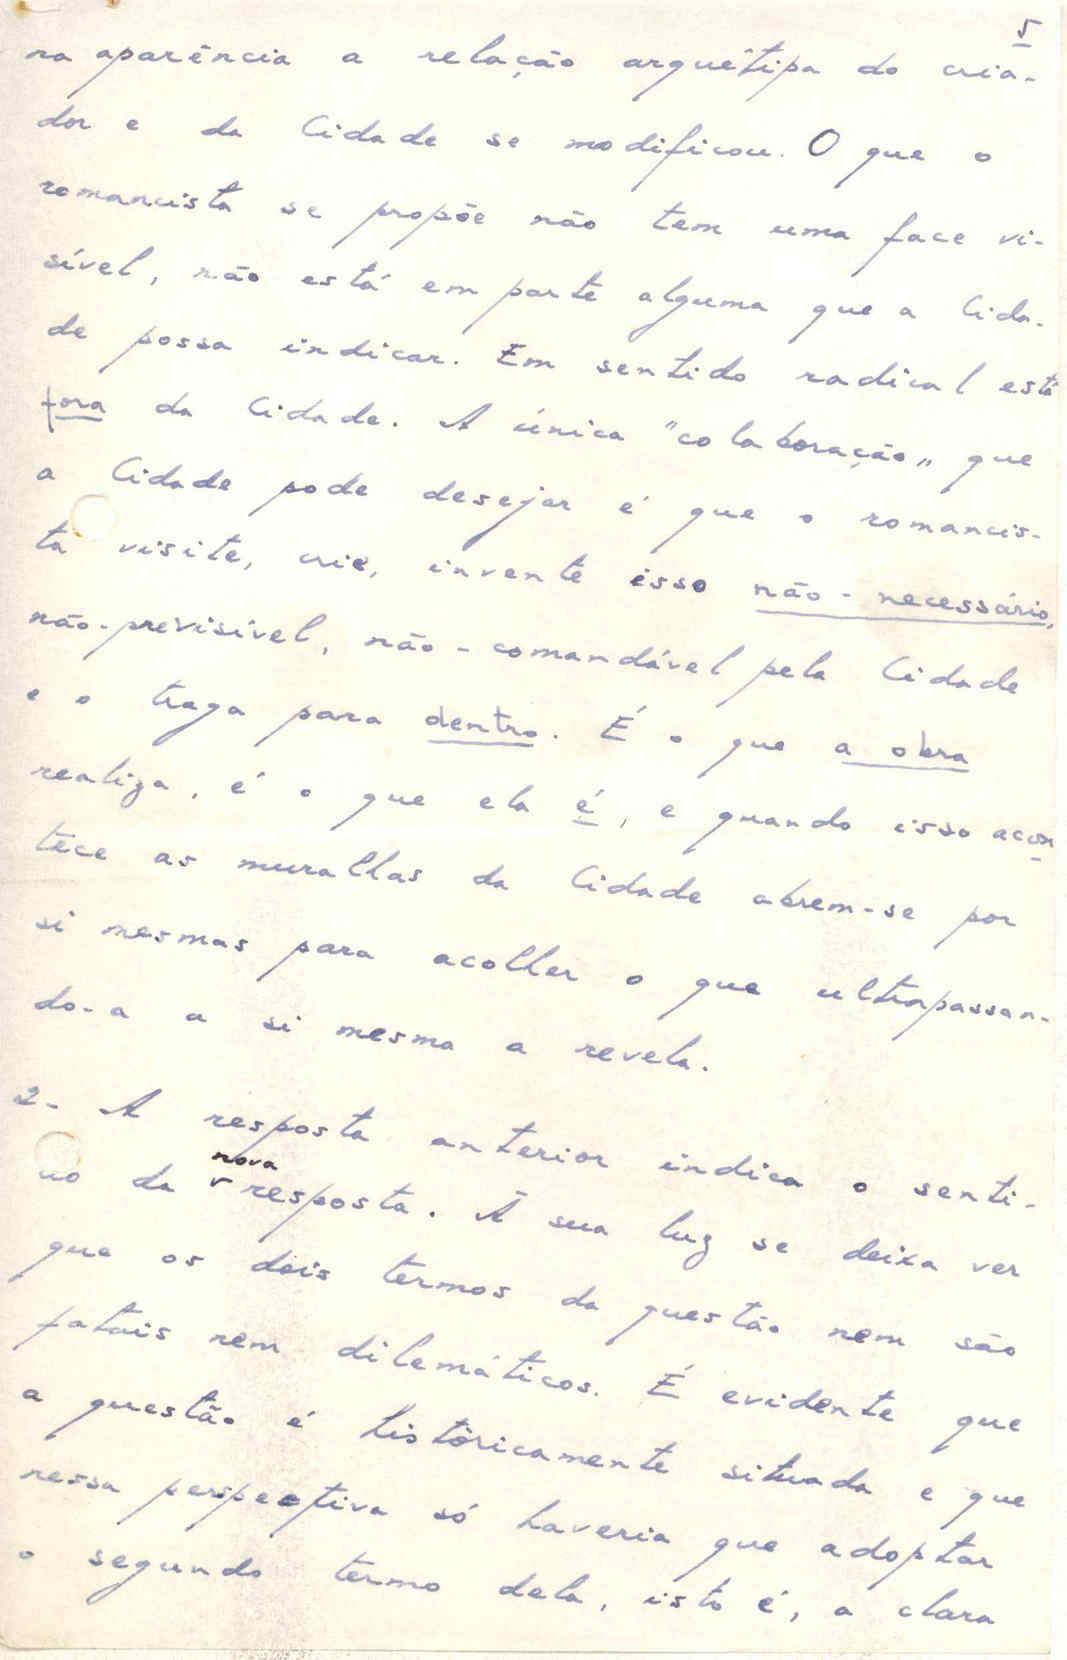 5
na aparência a relação arquétipa do cria-
dor e da Cidade se modificou. O que o
romancista se propõe não tem uma face vi-
sível, não está em parte alguma que a Cida-
de possa indicar. Em sentido radical está
fora da Cidade. A única "colaboração" que
a Cidade pode desejar é que o romancis-
ta visite, crie, invente isso não-necessário,
não-previsível, não-comandável pela Cidade
e o traga para dentro. É o que a obra
realiza, é o que ela é, e quando isso acon
tece as muralhas da Cidade abrem-se por
si mesmas para acolher o que ultrapassan-
do-a a si mesma a revela.
2- A resposta anterior indica o senti-
do da nova resposta. À sua luz se deixa ver
que os dois termos da questão nem são
fatais nem dilemáticos. É evidente que
a questão é històricamente situada e que
nessa perspectiva só haveria que adoptar
o segundo termo dela, isto é, a clara